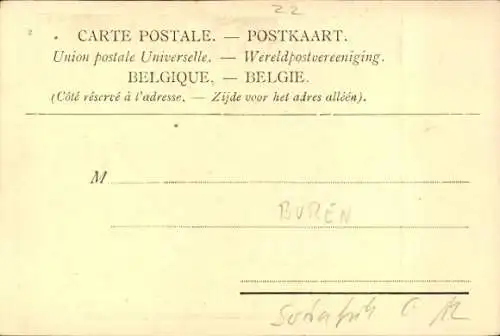 22
CARTE POSTALE. — POSTKAART.
Union postale Universelle. — Wereldpostvereeniging.
BELGIQUE. — BELGIE.
(Côté réservé à l'adresse. — Zijde voor het adres alléén).
M
BUREN